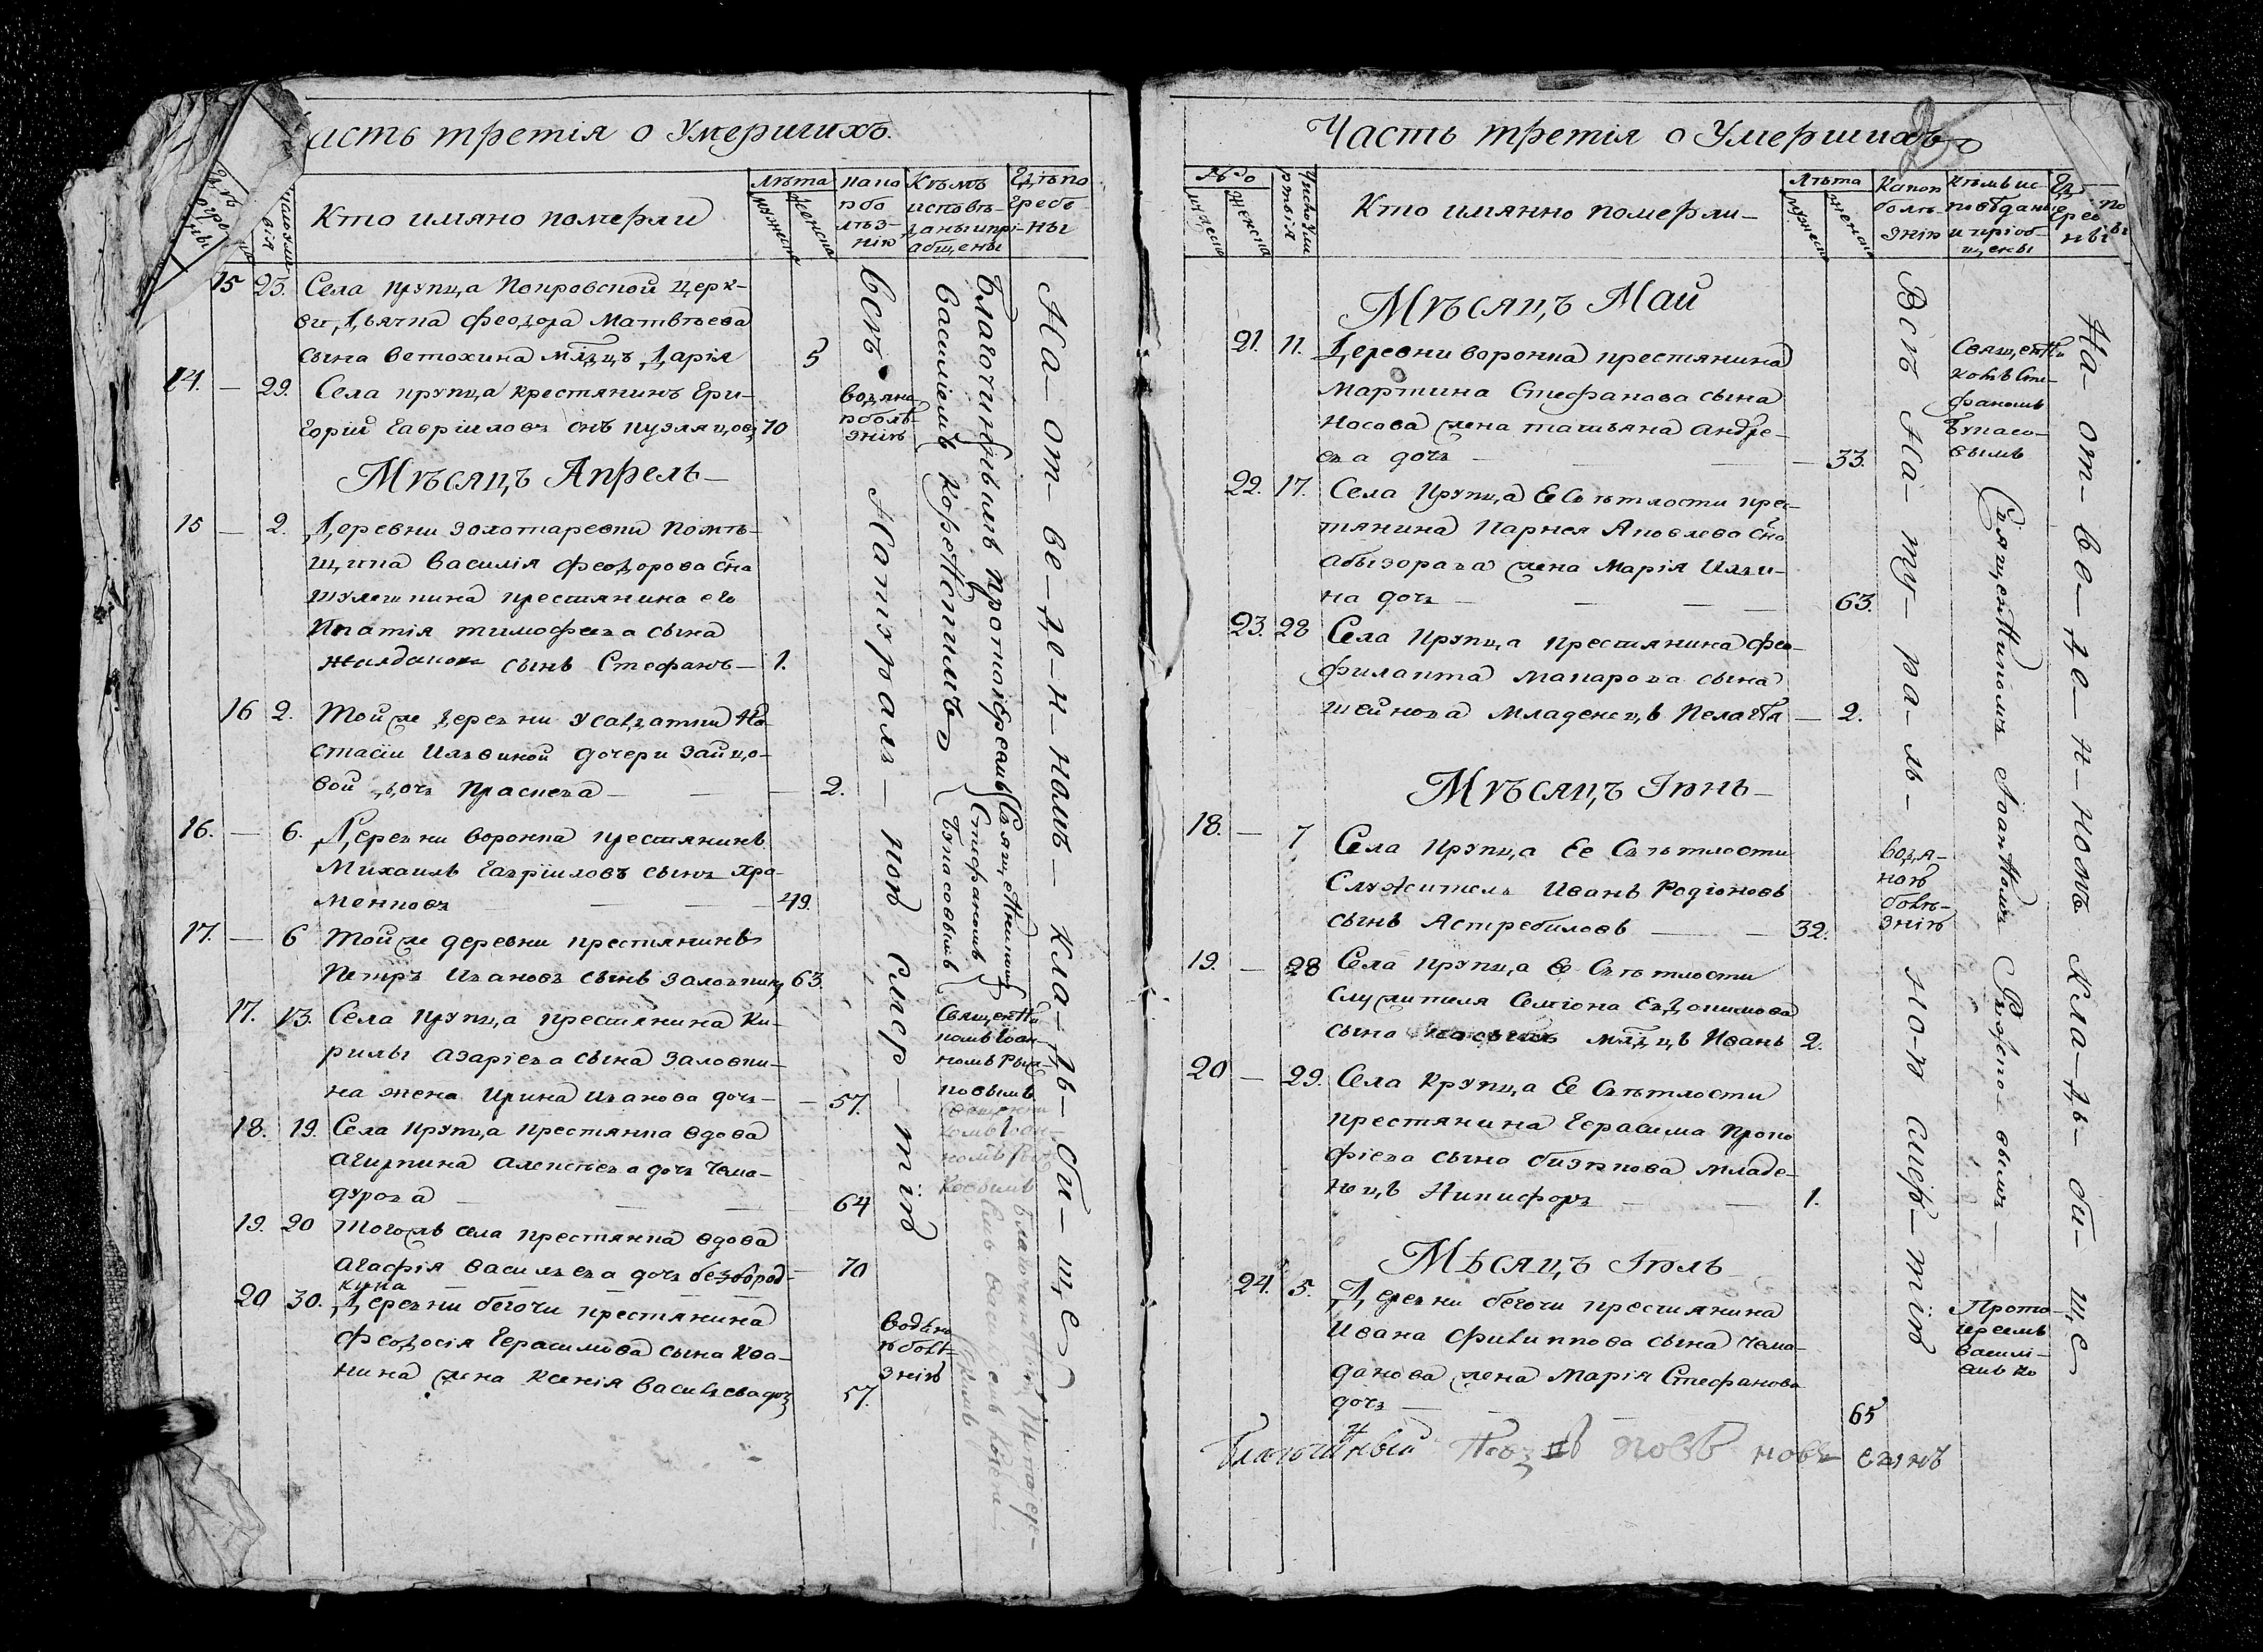 Часть третія о Умершихъ.
Кто имяно померли
Лѣта
мужеска
женска
какою
ю бо
лѣз-
нію
Кѣмъ
исповѣ-
даны и прі-
абщены
Гдѣ по
гребе-
ны
15 23. Села крупца Покровской Церк-
ви Дьячка Феодора Матвѣева
сына Ветохина млдцъ Дарія 5
14. — 29. Села крупца крестянинъ Гри-
горій Гавріиловъ снъ 70
водяно
ю болѣ-
знію
Мѣсяцъ Апрель
15 — 2. Деревни Золотаревки помѣ-
щика Василія Феодорова сна
крестянина его
Игнатія Тимофеева сына
сынъ Стефанъ — 1.
16 2. Той же деревни
стасіи Ильвиной дочери Зайцо-
вой дочь Праскева — 2.
16. — 6. Деревни воронка крестянинъ
Михаилъ Гавріиловъ сынъ Хра-
менковъ 49.
17. — 6 Той же деревни крестянинъ
Петръ Ивановъ сынъ Заловкинъ 63
17. 13. Села крупца крестянина Ки-
рилы Азаріева сына Заловки-
на жена Ирина Иванова дочь — 57.
18. 19. Села крупца крестянка вдова
Агрипина Алексѣева дочь Чема-
дурова 64
19. 20 Тогожъ села крестянка вдова
Агафія Васильева дочь безбород- 70
кина
20 30. Деревни бегочи крестянина
Феодосія Герасимова сына Ква-
нина жена Ксенія Васильева дочь 57.
водяно
ю болѣ-
знію
Всѣ Натуралною смертію
Благочиннымъ протоіереемъ
Василіемъ Корейскимъ
Священникомъ
Стефаномъ
Букасовымъ
Священни
комъ Іоан-
номъ Рыж-
ковымъ
На отведенномъ кладбище
Часть третія о Умершихъ
Число
мужеска
женска
Число уме
ртвія
Кто имянно померли
Лѣта
мужеска
женска
Какою
болѣ-
знію
Кѣмъ ис-
повѣданы
и пріоб-
щены
Гдѣ
по
гребе
ны
Мѣсяцъ Май
21. 11. Деревни воронка крестянина
Мартина Стефанова сына
Носова жена Татьяна Андре-
ева дочь — 33.
Священни
комъ Сте-
фаномъ
Букасо-
вымъ
22. 17. Села Крупца Ее Свѣтлости крес-
тянина Карнея Яковлева сна
жена Марія Ильи-
на дочь — 63.
23. 28 Села Крупца крестянина Фео-
филакта Макарова сына
Шейнова младенецъ Пелагія — 2.
Мѣсяцъ Іюнь
18. — 7 Села Крупца Ее Свѣтлости
Служитель Иванъ Родіоновъ
сынъ Ястребиловъ — 32.
водя-
ною
болѣ-
знію
19. — 28 Села крупца Ее Свѣтлости
служителя Семіона Евдокимова
сына млдцъ Иванъ 2.
20 — 29. Села Крупца Ее Свѣтлости
крестянина Герасима Проко
фіева сына младе-
нецъ Никифоръ — 1.
Мѣсяцъ Іюль
24. 5. Деревни бегочи крестянина
Ивана Филиппова сына Чема-
данова жена Марія Стефанова
дочь 65
Прото-
іереемъ
Василі-
емъ Ко
Всѣ Натуралною смертію
Священникомъ Іоанномъ Рыжковымъ
На отведенномъ Кладбище
Благочинный